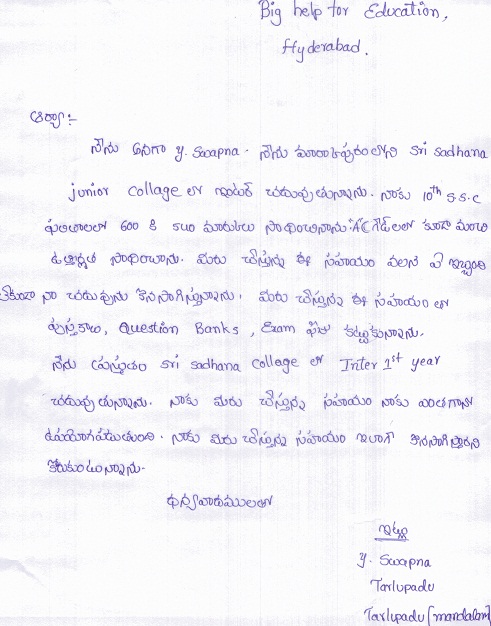 Big help for Education,
Hyderabad.
ఆర్యా :-
నేను అనగా y. Swapna. నేను మార్కాపురంలోని sri sadhana
junior collage లో ఇంటర్ చదువుతున్నాను. నాకు 10th s.s.c
ఫలితాలలో 600 కి 540 మార్కులు సాధించినాను. లలో కూడా మంచి
ఉత్తీర్ణత సాధించాను. మీరు చేస్తున్న ఈ సహాయం వలన ఏ ఇబ్బంది
లేకుండా నా చదువును కొనసాగిస్తున్నాను. మీరు చేస్తున్న ఈ సహాయం లో
పుస్తకాలు, Question Banks, Exam ఫీజు కట్టుకున్నాను.
నేను ప్రస్తుతం sri sadhana collage లో Inter 1st year
చదువుతున్నాను. నాకు మీరు చేస్తున్న సహాయం నాకు ఎంతగానో
ఉపయోగపడుతుంది. నాకు మీరు చేస్తున్న సహాయం ఇలాగే కొనసాగిస్తారని
కోరుకుంటున్నాను.
ధన్యవాదములతో
ఇట్లు
y. Swapna
Tarlupadu
Tarlupadu [mandalam]